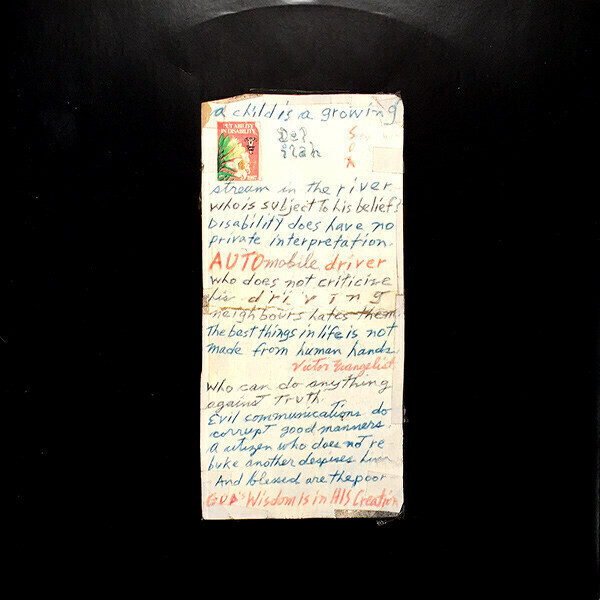 a child is a growing
PUT ABILITY
IN DISABILITY
stream in the river
who is subject to his beliefs
Disability does have no
private interpretation.
AUTOmobile driver
who does not criticise
his driving
neighbours hates them.
The best things in life is not
made from human hands
Victor Evangelist
Who can do anything
against Truth.
Evil communications do
corrupt good manners.
a citizen who does not re
buke another despises him
And blessed are the poor
GOD's Wisdom is in HIS Creation